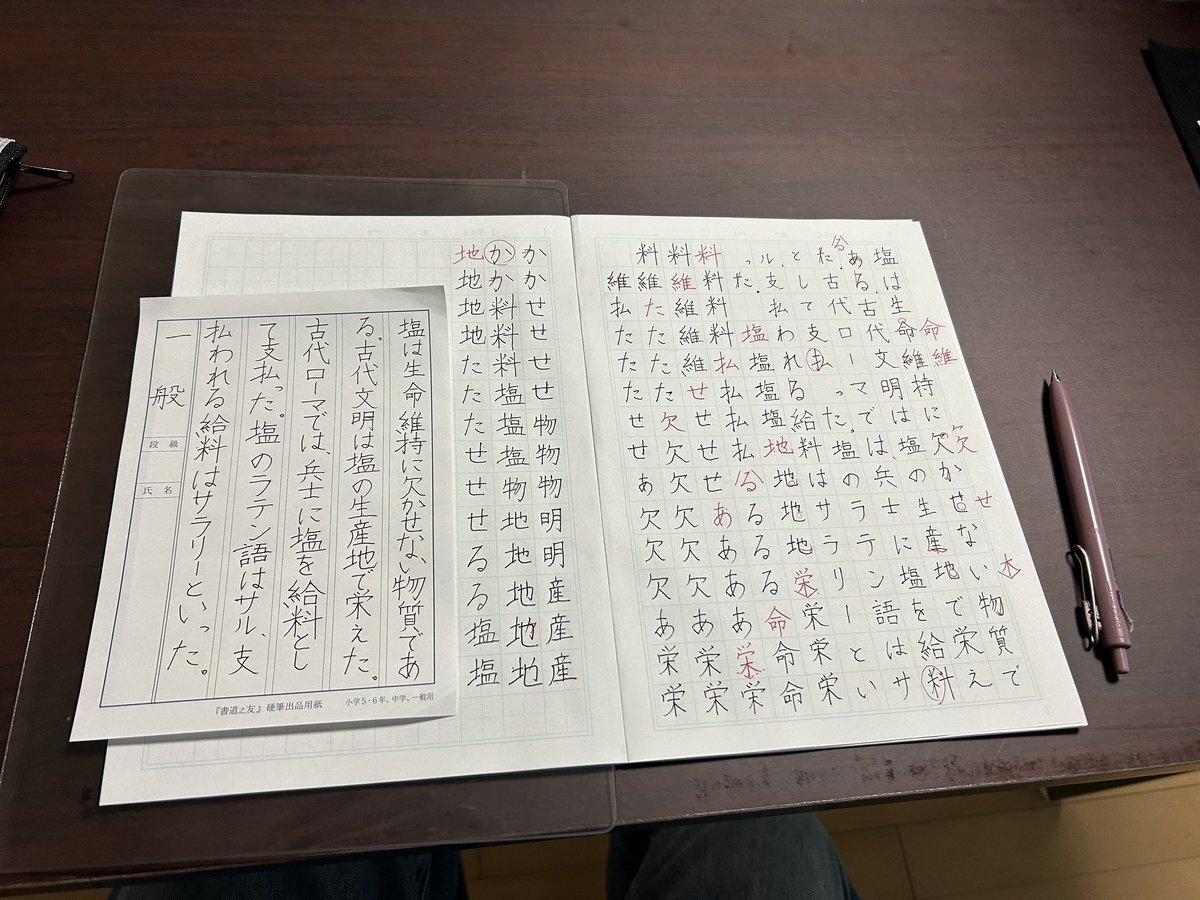 塩は生命維持に欠かせない物質であ
る。古代文明は塩の生産地で栄えた。
古代ローマでは、兵士に塩を給料とし
て支払った。塩のラテン語はサル、支
払われる給料はサラリーといった。
一般
段級
氏名
『書道之友』硬筆出品用紙 小学5・6年、中学、一般用
命維欠せ木
塩は生命維持に欠かせない物質で
る
ある。古代文明は塩の生産地で栄え
た。古代ローマでは、兵士に塩を給料
として支払った。塩のラテン語はサ
ル、支払われる給料はサラリーとい
った。塩塩塩塩地地地地栄栄栄栄
料料料料払払払払るるるる命命命
料維維維維せせせせああああ栄栄
料維たたたた欠欠欠欠欠欠あ栄栄
維払たたたせせあ欠欠欠あ栄栄
かかせせせせ物物物明明産産産
かか料料料塩塩塩物地地地地地
地地地地たたたせせせるる塩塩